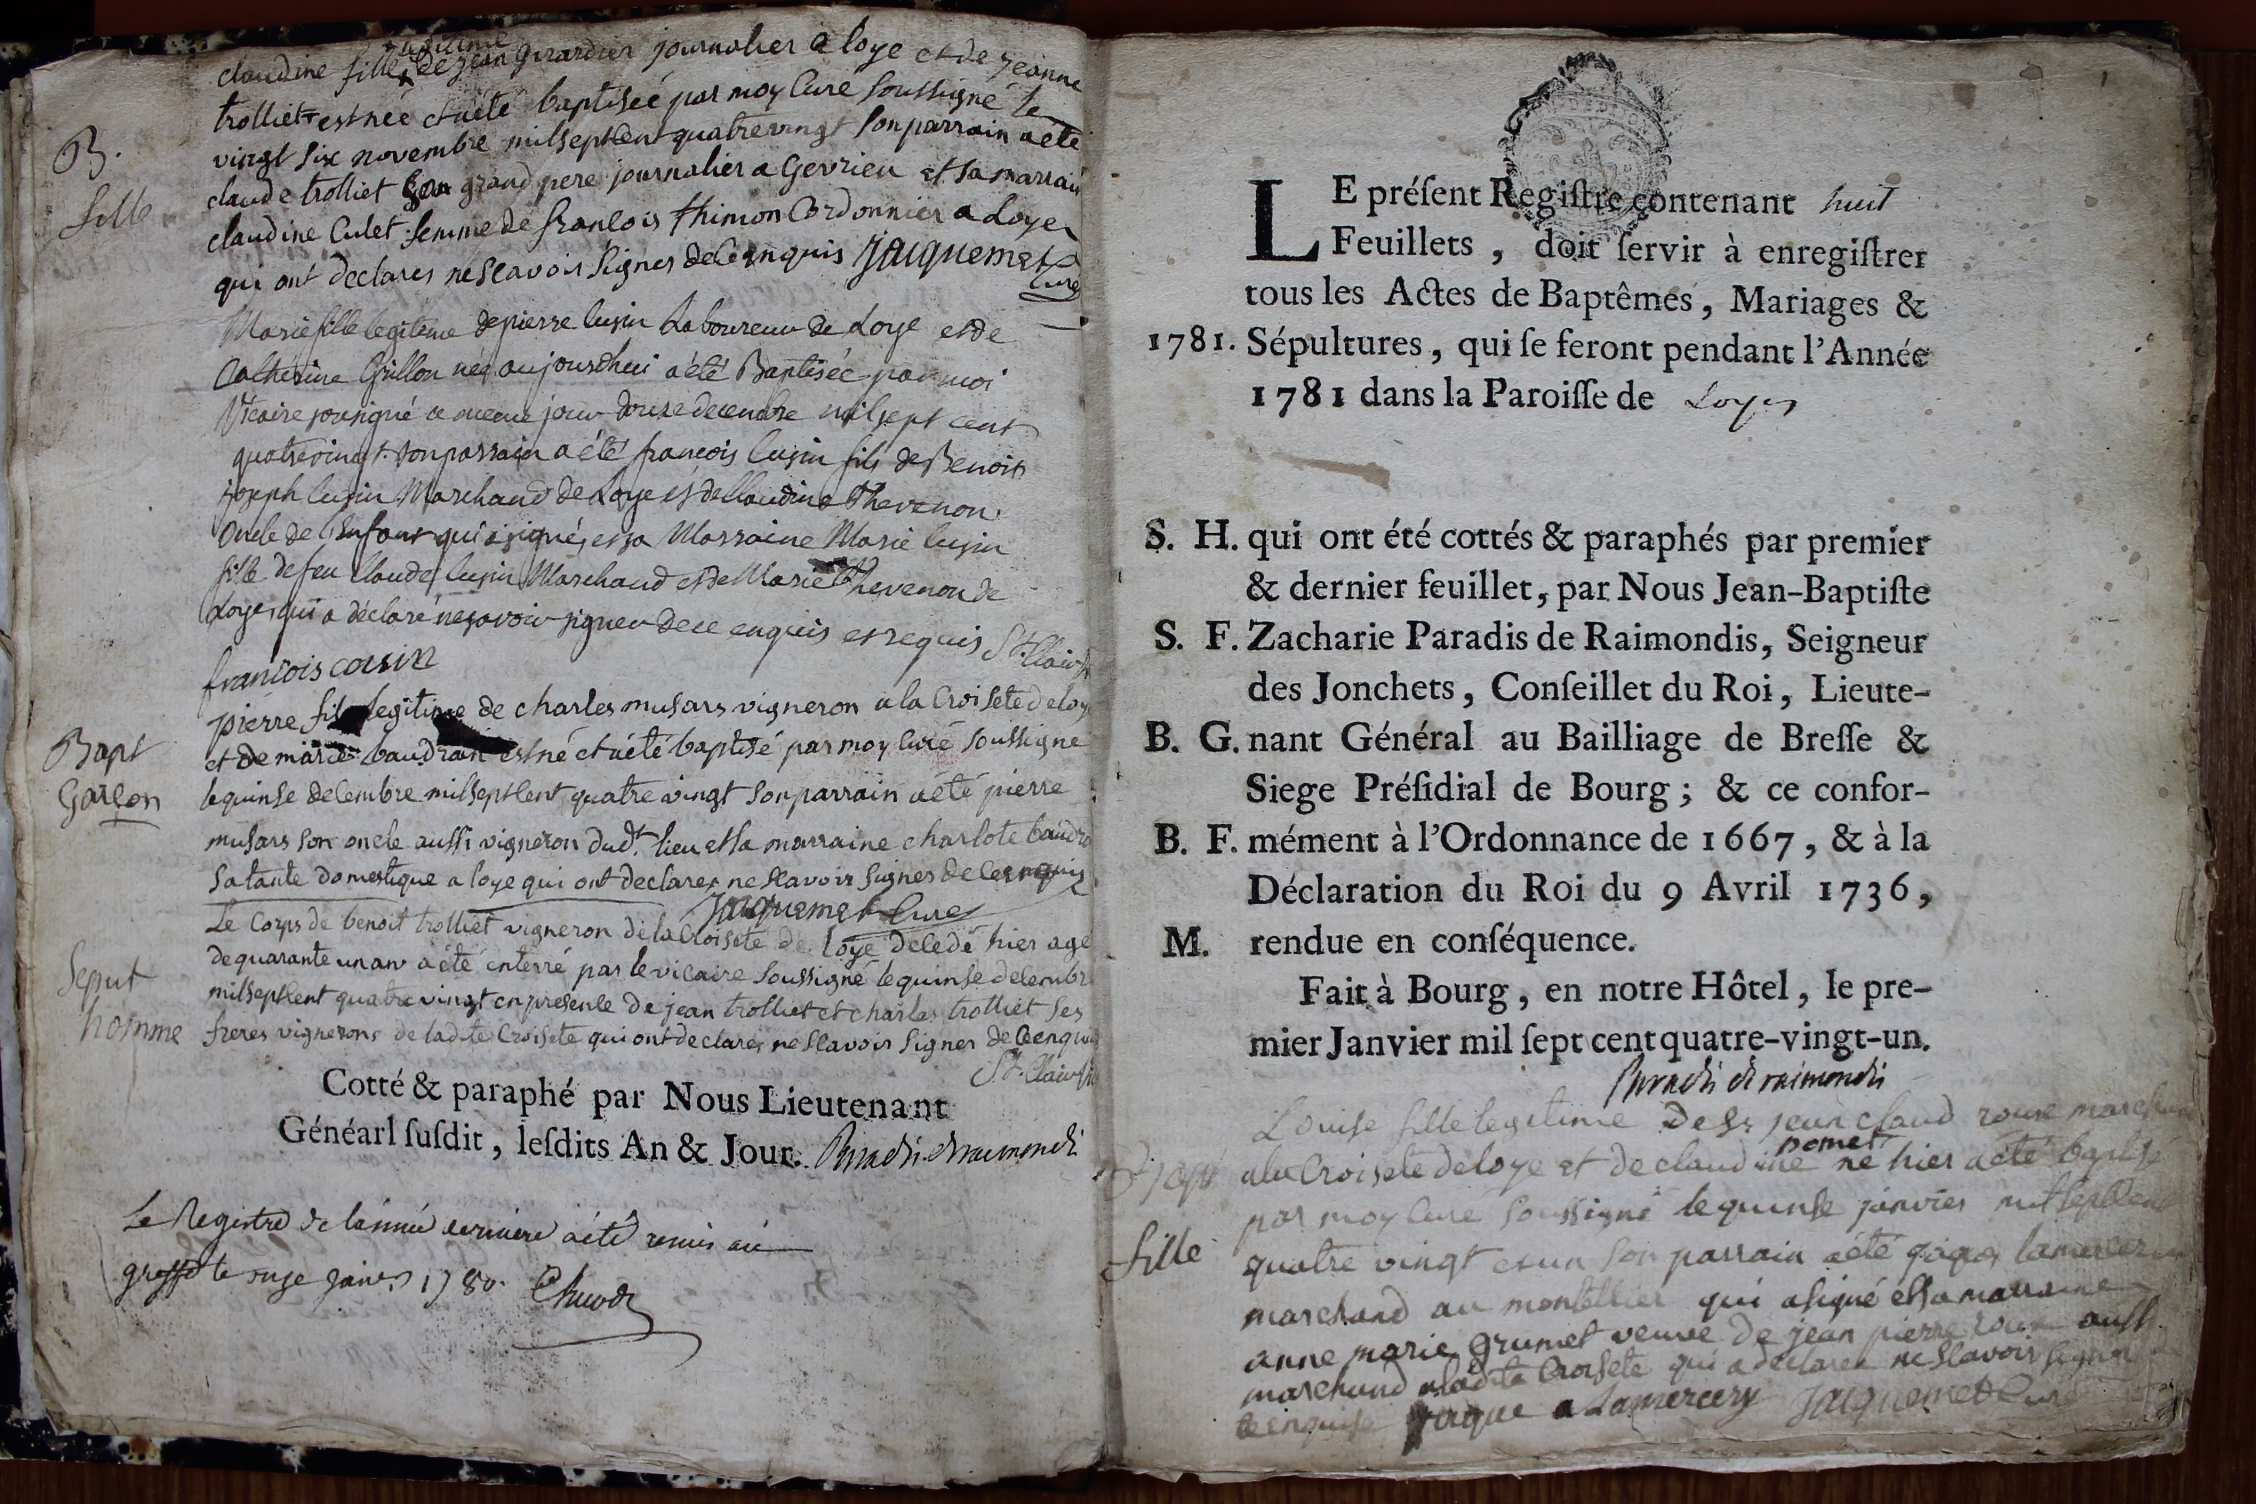 legitime
claudine fille de jean girardier journalier a loye et de jeanne
trolliet est née et a été baptisée par moy Curé soussigné le
vingt six novembre mil sept Cent quatre vingt son parrain a été
B.
fille
claude trolliet son grand pere journalier a Gevrieu et sa marrain
claudine Culet femme de francois thimon Cordonnier a Loye
qui ont declares ne scavoir signer de Ce enquis Jaquemet
Curé
Marie fille legitime de pierre cusin Laboureur de Loye et de
Catherine Grillon née aujourdhui a été Baptisée par moi
Vicaire sousigné ce meme jour douze decembre mil sept cent
quatrevingt. son parrain a été francois cusin fils de Benoit
joseph cusin Marchand de Loye et de Claudine Thevenon
Oncle de l'enfant qui a signé, et sa Marraine Marie cusin
fille de feu Claude cusin Marchand et de Marie Thevenon de
Loye, qui a déclaré ne savoir signer de ce enquis et requis St. Clair
francois cusin
Bapt
Garçon
pierre fils legitime de charles musars vigneron a la Croisete de loye
et de marie baudran est né et a été baptisé par moy Curé soussigne
le quinse decembre mil sept Cent quatre vingt son parrain a été pierre
musars son oncle aussi vigneron dud.t lieu et sa marraine charlote baudra
sa tante domestique a loye qui ont declares ne scavoir signer de Ce enquis
Jaquemet Curé
Seput
homme
Le Corps de benoit trolliet vigneron de la Croisete de loye decedé hier agé
de quarante un an a été enterré par le vicaire soussigné le quinse decembre
mil sept Cent quatre vingt en presence de jean trolliet et charles trolliet ses
freres vignerons de ladite Croisete qui ont declares ne scavoir signer de Ce enquis
St. Clair
Cotté & paraphé par Nous Lieutenant
Généarl ſuſdit, leſdits An & Jour. Paradis de raimondi
Le Registre de l'année derniere a été remis au
greffe le onze janv. 1780.
LE préſent Regiſtre contenant huit
Feuillets, doit ſervir à enregiſtrer
tous les Actes de Baptêmes, Mariages &
1781. Sépultures, qui ſe feront pendant l'Année
1781 dans la Paroiſſe de Loyes
S. H. qui ont été cottés & paraphés par premier
& dernier feuillet, par Nous Jean-Baptiſte
S. F. Zacharie Paradis de Raimondis, Seigneur
des Jonchets, Conſeillet du Roi, Lieute-
B. G. nant Général au Bailliage de Breſſe &
Siege Préſidial de Bourg; & ce confor-
B. F. mément à l'Ordonnance de 1667, & à la
Déclaration du Roi du 9 Avril 1736,
M. rendue en conſéquence.
Fait à Bourg, en notre Hôtel, le pre-
mier Janvier mil ſept cent quatre-vingt-un.
Paradis de raimondis
Louise fille legitime de sr jean claud roux marchand
pomet
a la Croisete de loye et de claudine né hier a été baptisé
par moy Curé soussigné le quinse janvier mil sept Cent
fille
quatre vingt et un son parrain a été lamercery
marchand au montellier qui a signé et sa marraine
anne marie Grumet veuve de jean pierre roux aussi
marchand a ladite Croisete qui a declaree ne scavoir signer
de Ce enquise a Lamercery Jaquemet Curé